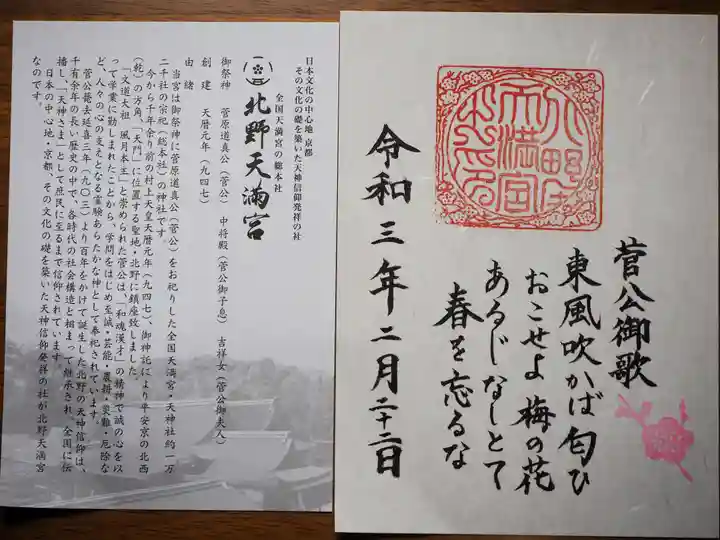 菅公御歌
東風吹かば匂ひ
おこせよ梅の花
あるじなしとて
春を忘るな
令和三年二月二十二日
北野天満宮
日本文化の中心地 京都
その文化の礎を築いた天神信仰発祥の社
全国天満宮の総本社
北野天満宮
御祭神 菅原道真公(菅公) 中将殿(菅公御子息) 吉祥女(菅公御夫人)
創建 天暦元年(九四七)
由緒
当宮は御祭神に菅原道真公(菅公)をお祀りした全国天満宮・天神社約一万
二千社の宗祀(総本社)の神社です。
今から千年余り前の村上天皇天暦元年(九四七)、御神託により平安京の北西
(乾)の方角、「天門」に位置する聖地・北野に鎮座致しました。
「文道大祖 風月本主」と崇められた菅公は、「和魂漢才」の精神で誠の心を以
って学業に勤しまれたことから、学問をはじめ至誠・芸能・農耕・災難・厄除な
ど、人々の心の支えとなる霊験あらたかな神として奉祀されています。
菅公薨去延喜三年(九〇三)より百年をかけて誕生した北野の天神信仰は、
千有余年の長い歴史の中で、各時代の社会構造と相まって継承され、全国に伝
播し、「天神さま」として庶民に至るまで信仰されています。
日本の中心地・京都、その文化の礎を築いた天神信仰発祥の社が北野天満宮
なのです。